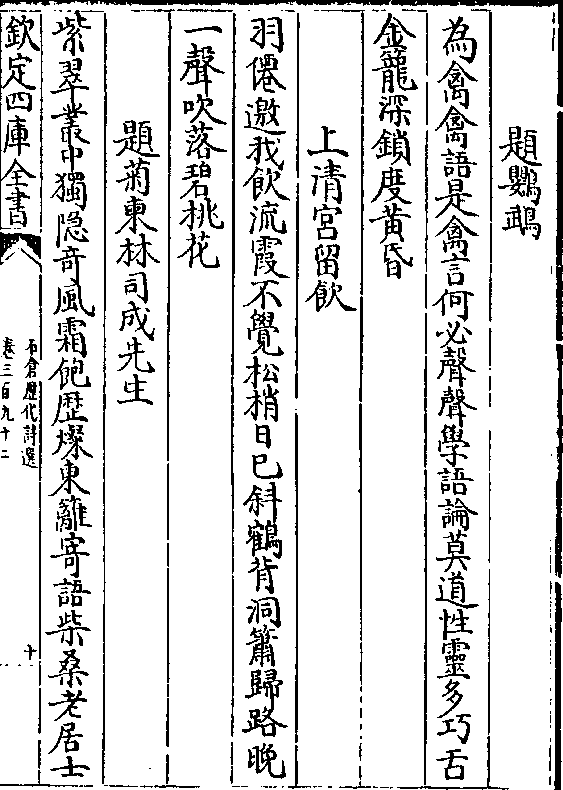 題鸚鵡
為禽禽語是禽言何必聲聲學語論莫道性靈多巧舌
金籠深鎖度黄昏
上清宮留飲
羽僊邀我飲流霞不覺松梢日已斜鶴背洞簫歸路晚
一聲吹落碧桃花
題菊東林司成先生
紫翠叢中獨隐竒風霜飽歴燦東籬寄語柴桑老居士
欽定四庫全書
石倉歴代詩選
卷三百九十二
十